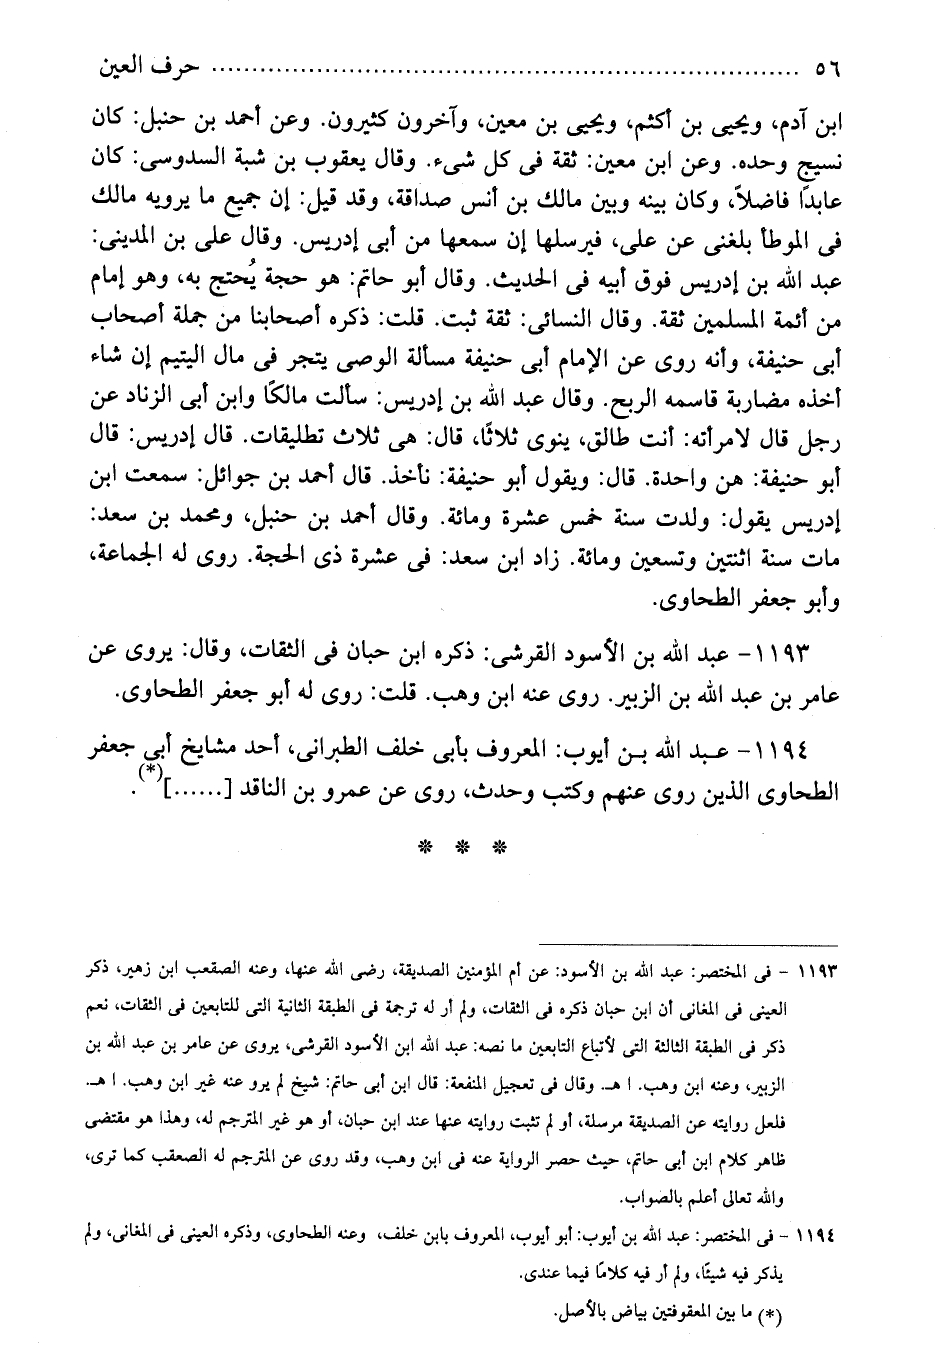 ٥٦ ........................................................................ حرف العين
ابن آدم، ويحيى بن أكثم، ويحيى بن معين، وآخرون كثيرون. وعن أحمد بن حنبل: كان
نسيج وحده. وعن ابن معين: ثقة فى كل شىء. وقال يعقوب بن شبة السدوسى: كان
عابدًا فاضلاً، وكان بينه وبين مالك بن أنس صداقة، وقد قيل: إن جميع ما يرويه مالك
فى الموطأ بلغنى عن على، فيرسلها إن سمعها من أبى إدريس. وقال على بن المدينى:
عبد الله بن إدريس فوق أبيه فى الحديث. وقال أبو حاتم: هو حجة يُحتج به، وهو إمام
من أئمة المسلمين ثقة. وقال النسائى: ثقة ثبت. قلت: ذكره أصحابنا من جملة أصحاب
أبى حنيفة، وأنه روى عن الإمام أبى حنيفة مسألة الوصى يتجر فى مال اليتيم إن شاء
أخذه مضاربة قاسمه الربح. وقال عبد الله بن إدريس: سألت مالكًا وابن أبى الزناد عن
رجل قال لامرأته: أنت طالق، ينوى ثلاثًا، قال: هى ثلاث تطليقات. قال إدريس: قال
أبو حنيفة: هن واحدة. قال: ويقول أبو حنيفة: نأخذ. قال أحمد بن جوائل: سمعت ابن
إدريس يقول: ولدت سنة خمس عشرة ومائة. وقال أحمد بن حنبل، ومحمد بن سعد:
مات سنة اثنتين وتسعين ومائة. زاد ابن سعد: فى عشرة ذى الحجة. روى له الجماعة،
وأبو جعفر الطحاوى.
١١٩٣- عبد الله بن الأسود القرشى: ذكره ابن حبان فى الثقات، وقال: يروى عن
عامر بن عبد الله بن الزبير. روى عنه ابن وهب. قلت: روى له أبو جعفر الطحاوى.
١١٩٤- عبد الله بن أيوب: المعروف بأبى خلف الطبرانى، أحد مشايخ أبى جعفر
الطحاوى الذين روى عنهم وكتب وحدث، روى عن عمرو بن الناقد [......](*).
* * *
١١٩٣ - فى المختصر: عبد الله بن الأسود: عن أم المؤمنين الصديقة، رضى الله عنها، وعنه الصقعب ابن زهير، ذكر
العينى فى المغانى أن ابن حبان ذكره فى الثقات، ولم أر له ترجمة فى الطبقة الثانية التى للتابعين فى الثقات، نعم
ذكر فى الطبقة الثالثة التى لأتباع التابعين ما نصه: عبد الله ابن الأسود القرشى، يروى عن عامر بن عبد الله بن
الزبير، وعنه ابن وهب. ا هـ. وقال فى تعجيل المنفعة: قال ابن أبى حاتم: شيخ لم يرو عنه غير ابن وهب. ا هـ.
فلعل روايته عن الصديقة مرسلة، أو لم تثبت روايته عنها عند ابن حبان، أو هو غير المترجم له، وهذا هو مقتضى
ظاهر كلام ابن أبى حاتم، حيث حصر الرواية عنه فى ابن وهب، وقد روى عن المترجم له الصعقب كما ترى،
والله تعالى أعلم بالصواب.
١١٩٤ - فى المختصر: عبد الله بن أيوب: أبو أيوب، المعروف بابن خلف، وعنه الطحاوى، وذكره العينى فى المغانى، ولم
يذكر فيه شيئًا، ولم أر فيه كلامًا فيما عندى.
(*) ما بين المعقوفتين بياض بالأصل.